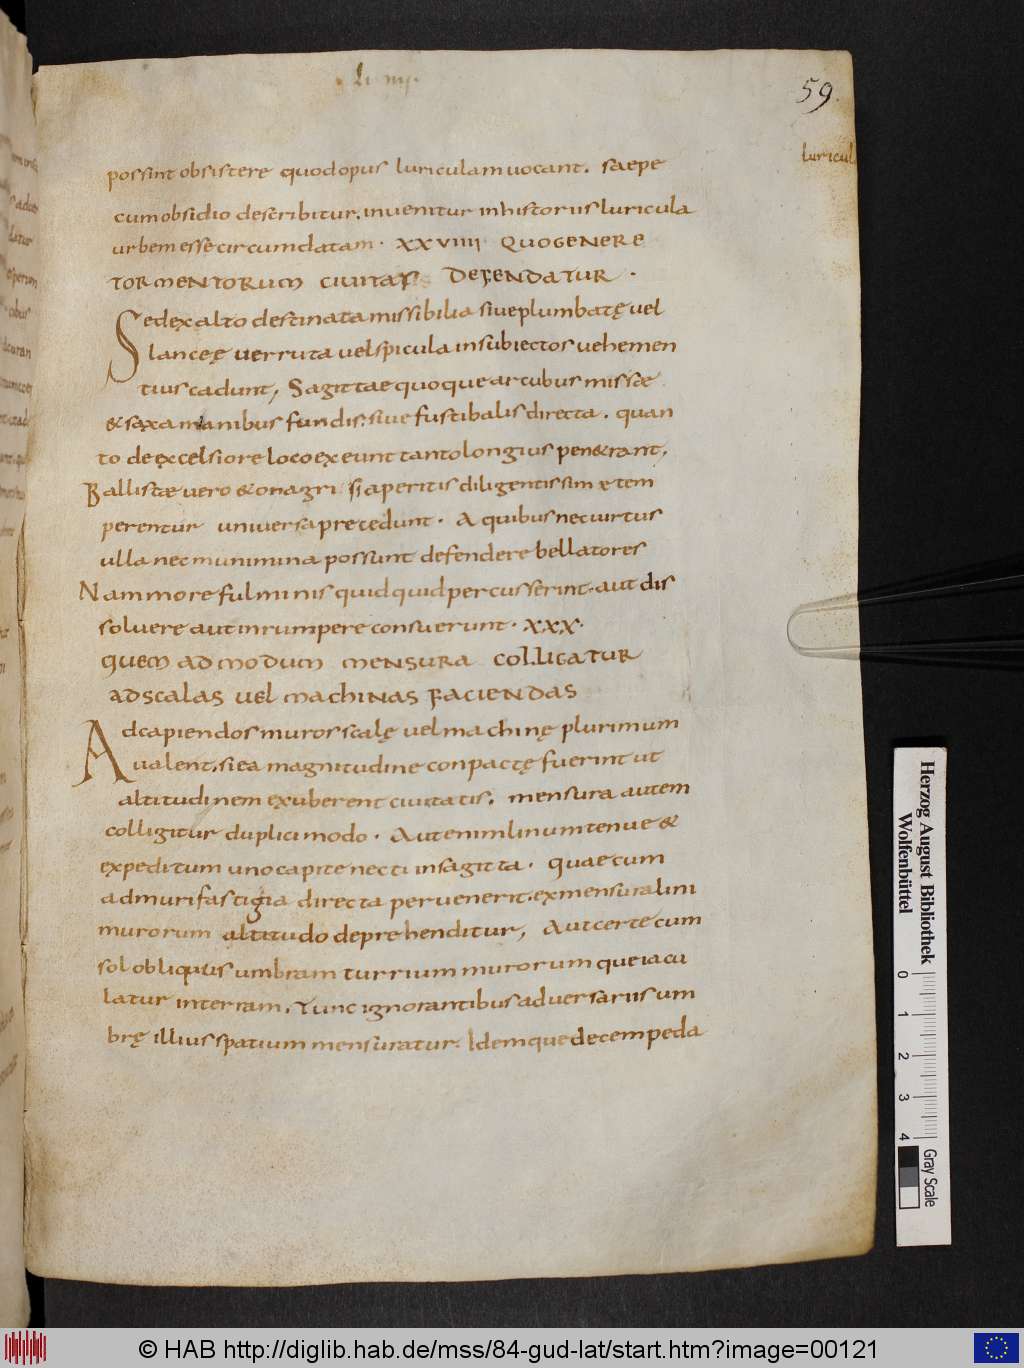 li iiij.
59
luricul
possint obsistere quod opus luriculam uocant. saepe
cum obsidio describitur. inuenitur in historiis luricula
urbem esse circumdatam. XXVIIII QUO GENERE
TORMENTORUM CIUITAS DEFENDATUR.
Sed ex alto destinata missibilia siue plumbatę uel
lanceę uerruta uel spicula in subiectos uehemen
tius cadunt, Sagittae quoque arcubus missae
& sęxa manibus fundis: siue fustibalis directa. quan
to de excelsiore loco exeunt tanto longius pen&rant.
Ballistae uero & onagri si a peritis diligentissime tem
perentur uniuersa precedunt. A quibus nec uirtus
ulla nec munimina possunt defendere bellatores
Nam more fulminis quidquid percusserint. aut dis
soluere aut inrumpere consuerunt. XXX.
QUEM AD MODUM MENSURA COLLIGATUR
AD SCALAS UEL MACHINAS FACIENDAS
Ad capiendos muros scalę uel machinę plurimum
ualent. si ea magnitudine conpactę fuerint ut
altitudinem exuberent ciuitatis. mensura autem
colligitur duplici modo. Aut enim linum tenue &
expeditum uno capite necti in sagitta. quae cum
ad muri fastigia directa peruenerit. ex mensura lini
murorum altitudo deprehenditur, Aut certe cum
sol obliquus umbram turrium murorumque iacu
latur in terram. Tunc ignorantibus aduersariis um
brę illius spatium mensuratur. Idemque decempeda
Herzog August Bibliothek
Wolfenbüttel
0 1 2 3 4
Gray Scale
© HAB http://diglib.hab.de/mss/84-gud-lat/start.htm?image=00121